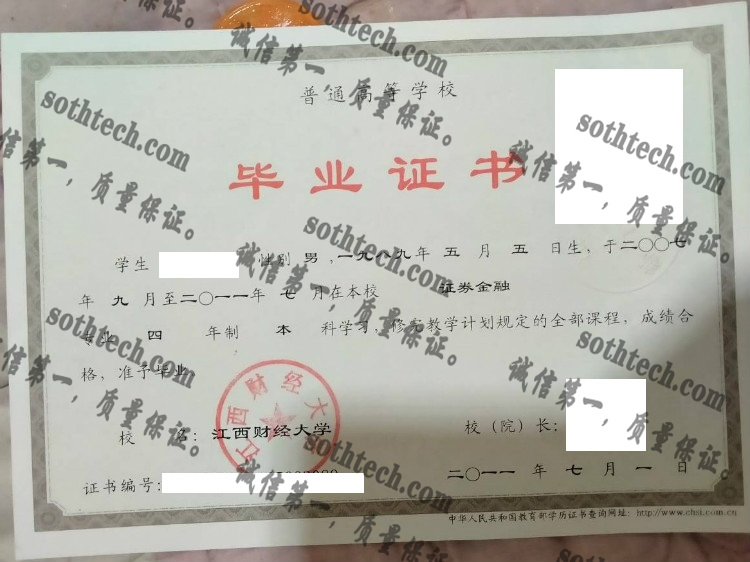 普通高等学校
毕业证书
学生 性别 男 ,一九八九年 五 月 五 日生，于二〇〇七
年 九 月至二〇一一年 七 月在本校 证券金融
专业 四 年制 本 科学习，修完教学计划规定的全部课程，成绩合
格，准予毕业。
江西财经大
校 名：江西财经大学 校（院）长：
二〇一一 年 七 月 一 日
证书编号：
中华人民共和国教育部学历证书查询网址：http://www.chsi.com.cn
sothtech.com
诚信第一，质量保证。
sothtech.com
诚信第一，质量保证。
sothtech.com
诚信第一，质量保证。
sothtech.com
诚信第一，质量保证。
sothtech.com
诚信第一，质量保证。
sothtech.com
诚信第一，质量保证。
sothtech.com
sothtech.com